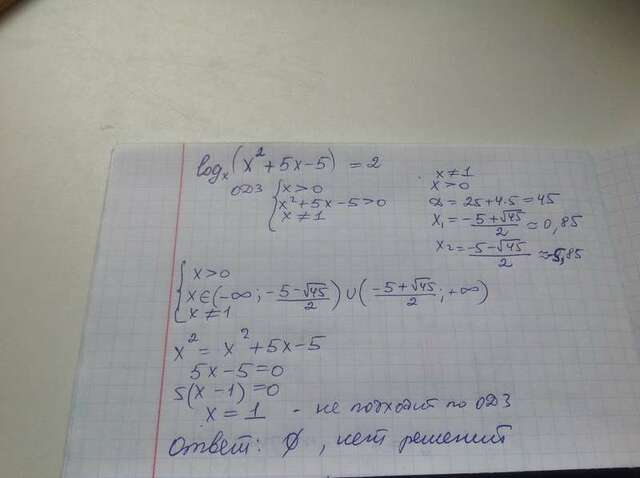 logₓ(x²+5x-5) = 2
ОДЗ { x>0
x²+5x-5>0
x≠1
x≠1
x>0
D = 25+4·5=45
x₁ = (-5+√45)/2 ≈ 0,85
x₂ = (-5-√45)/2 ≈ -5,85
{ x>0
x∈(-∞; (-5-√45)/2) ∪ ((-5+√45)/2; +∞)
x≠1
x² = x²+5x-5
5x-5=0
5(x-1)=0
x = 1 - не подходит по ОДЗ
Ответ: ∅, нет решений